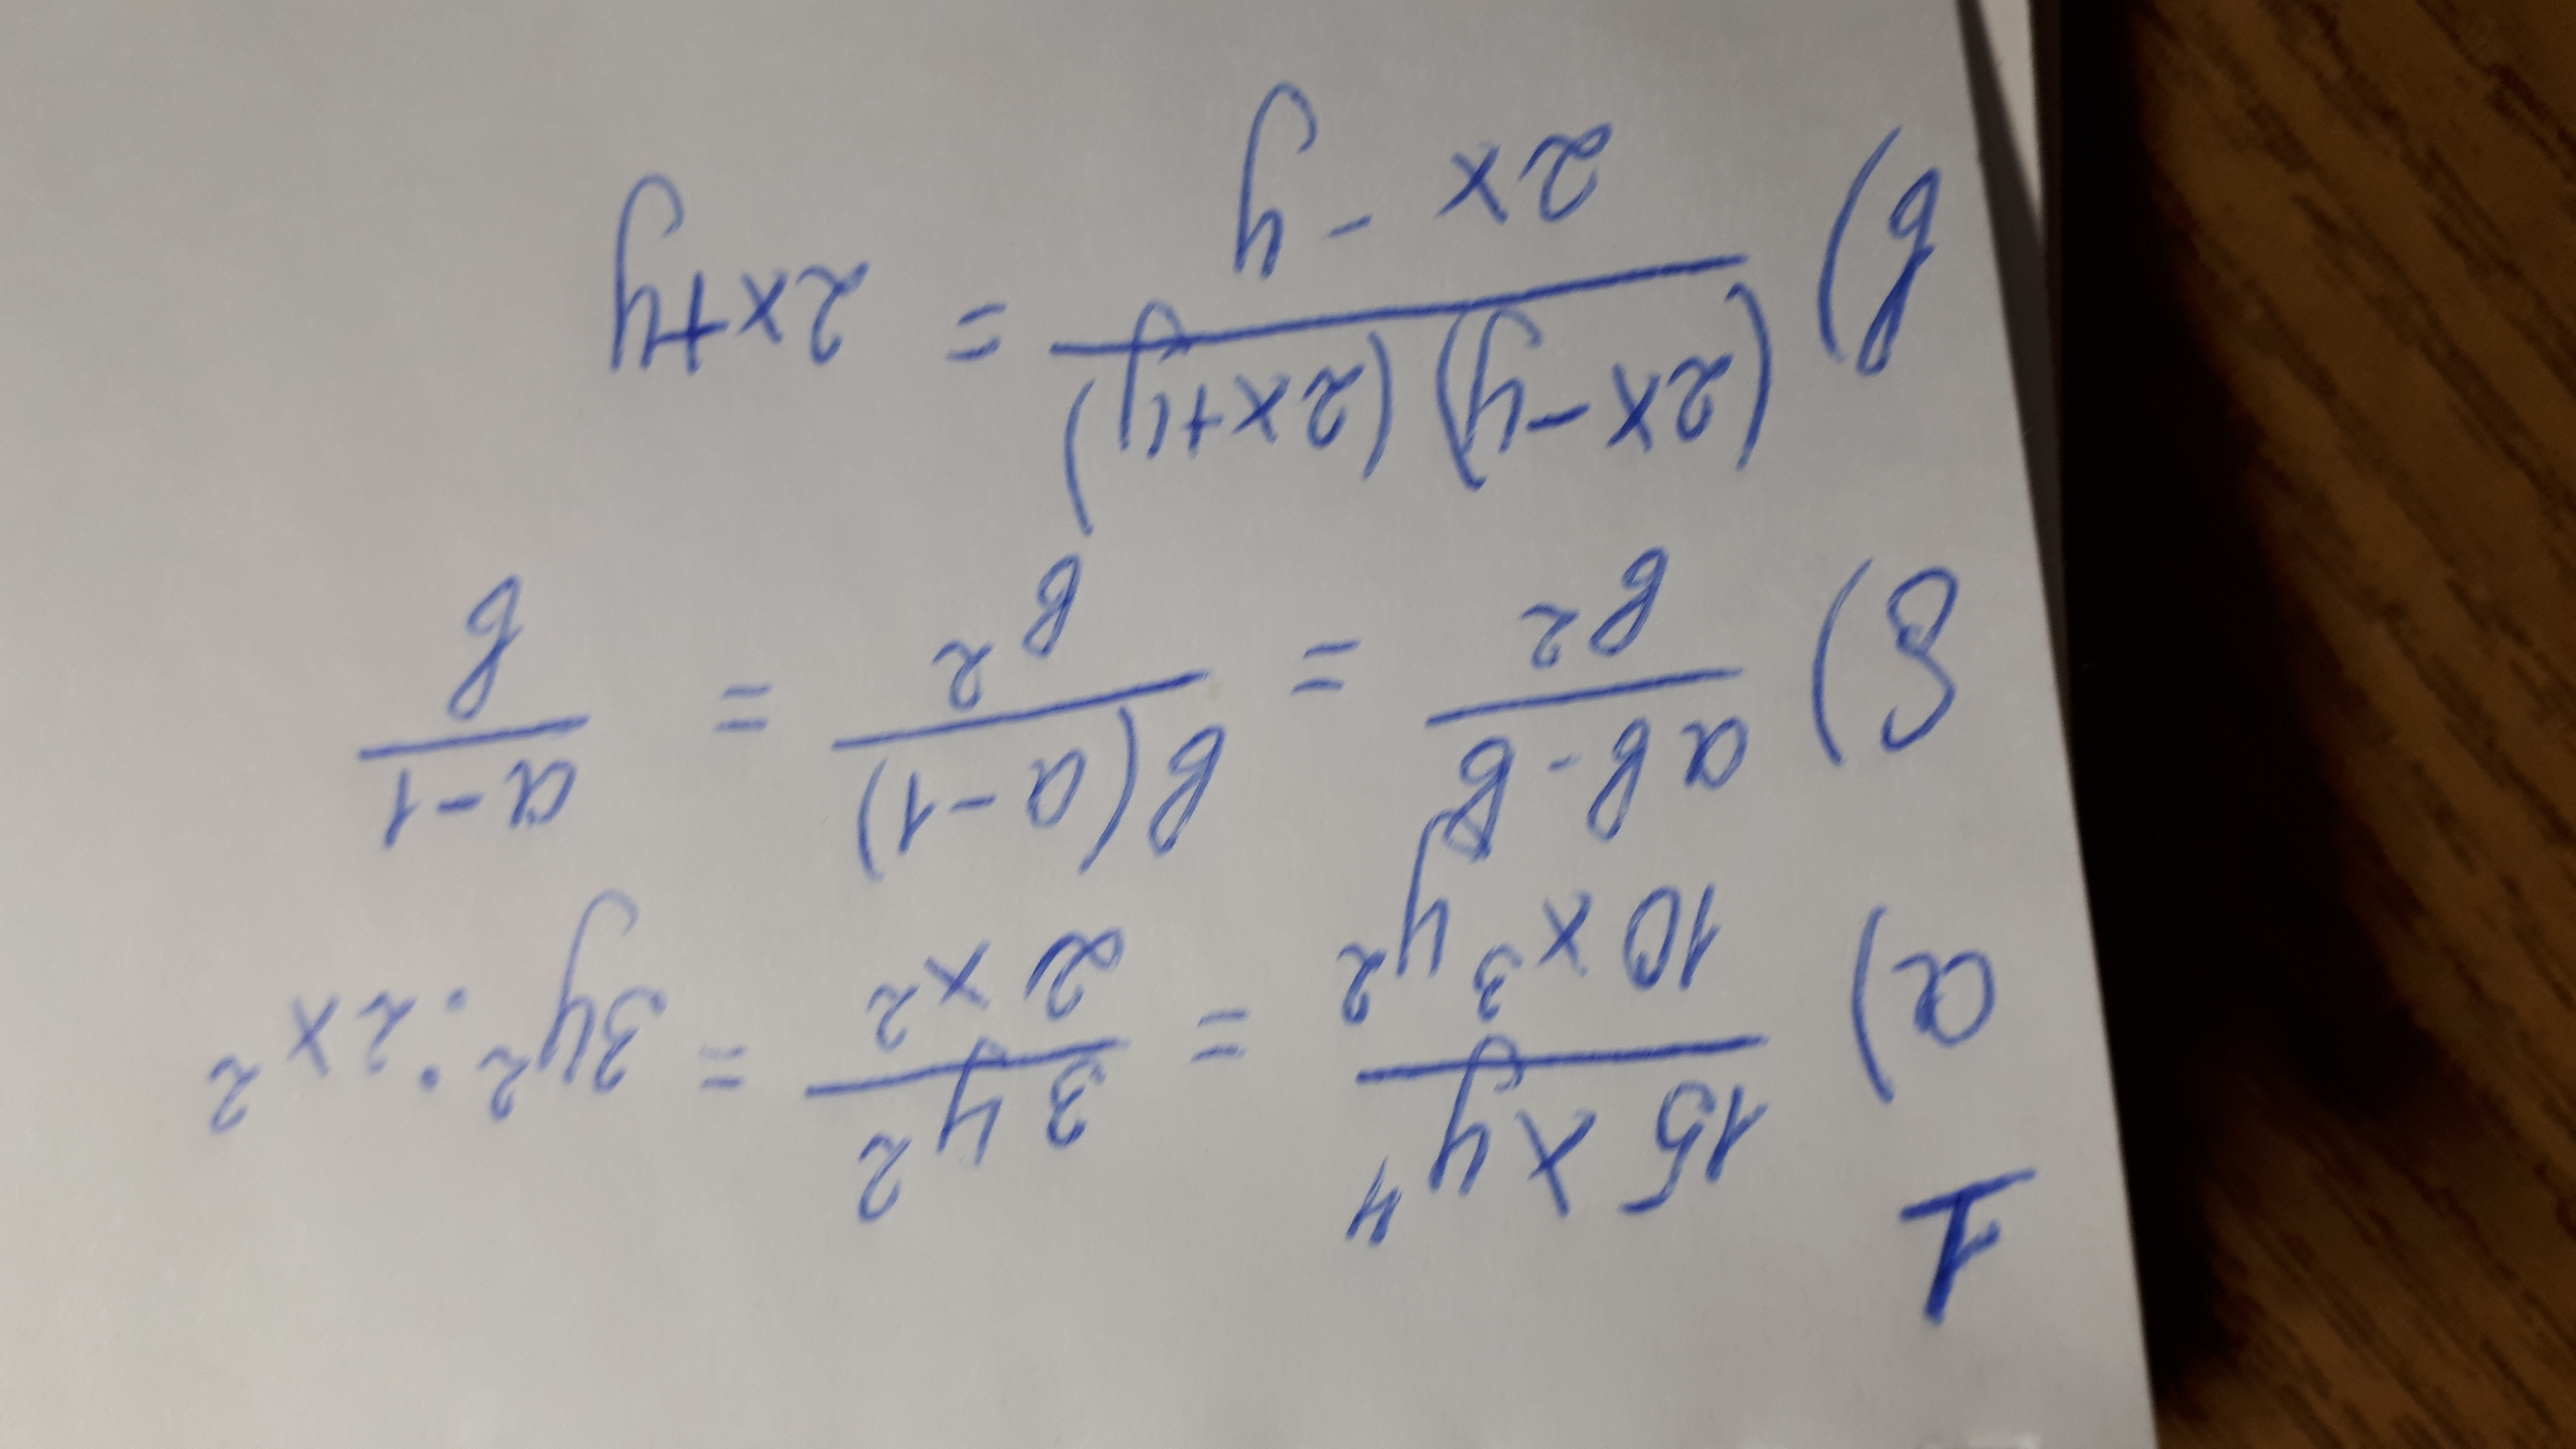 1
а) 15xy⁴/10x³y² = 3y²/2x² = 3y² : 2x²
б) (ab-b)/b² = b(a-1)/b² = (a-1)/b
в) (2x-y)(2x+y)/(2x-y) = 2x+y